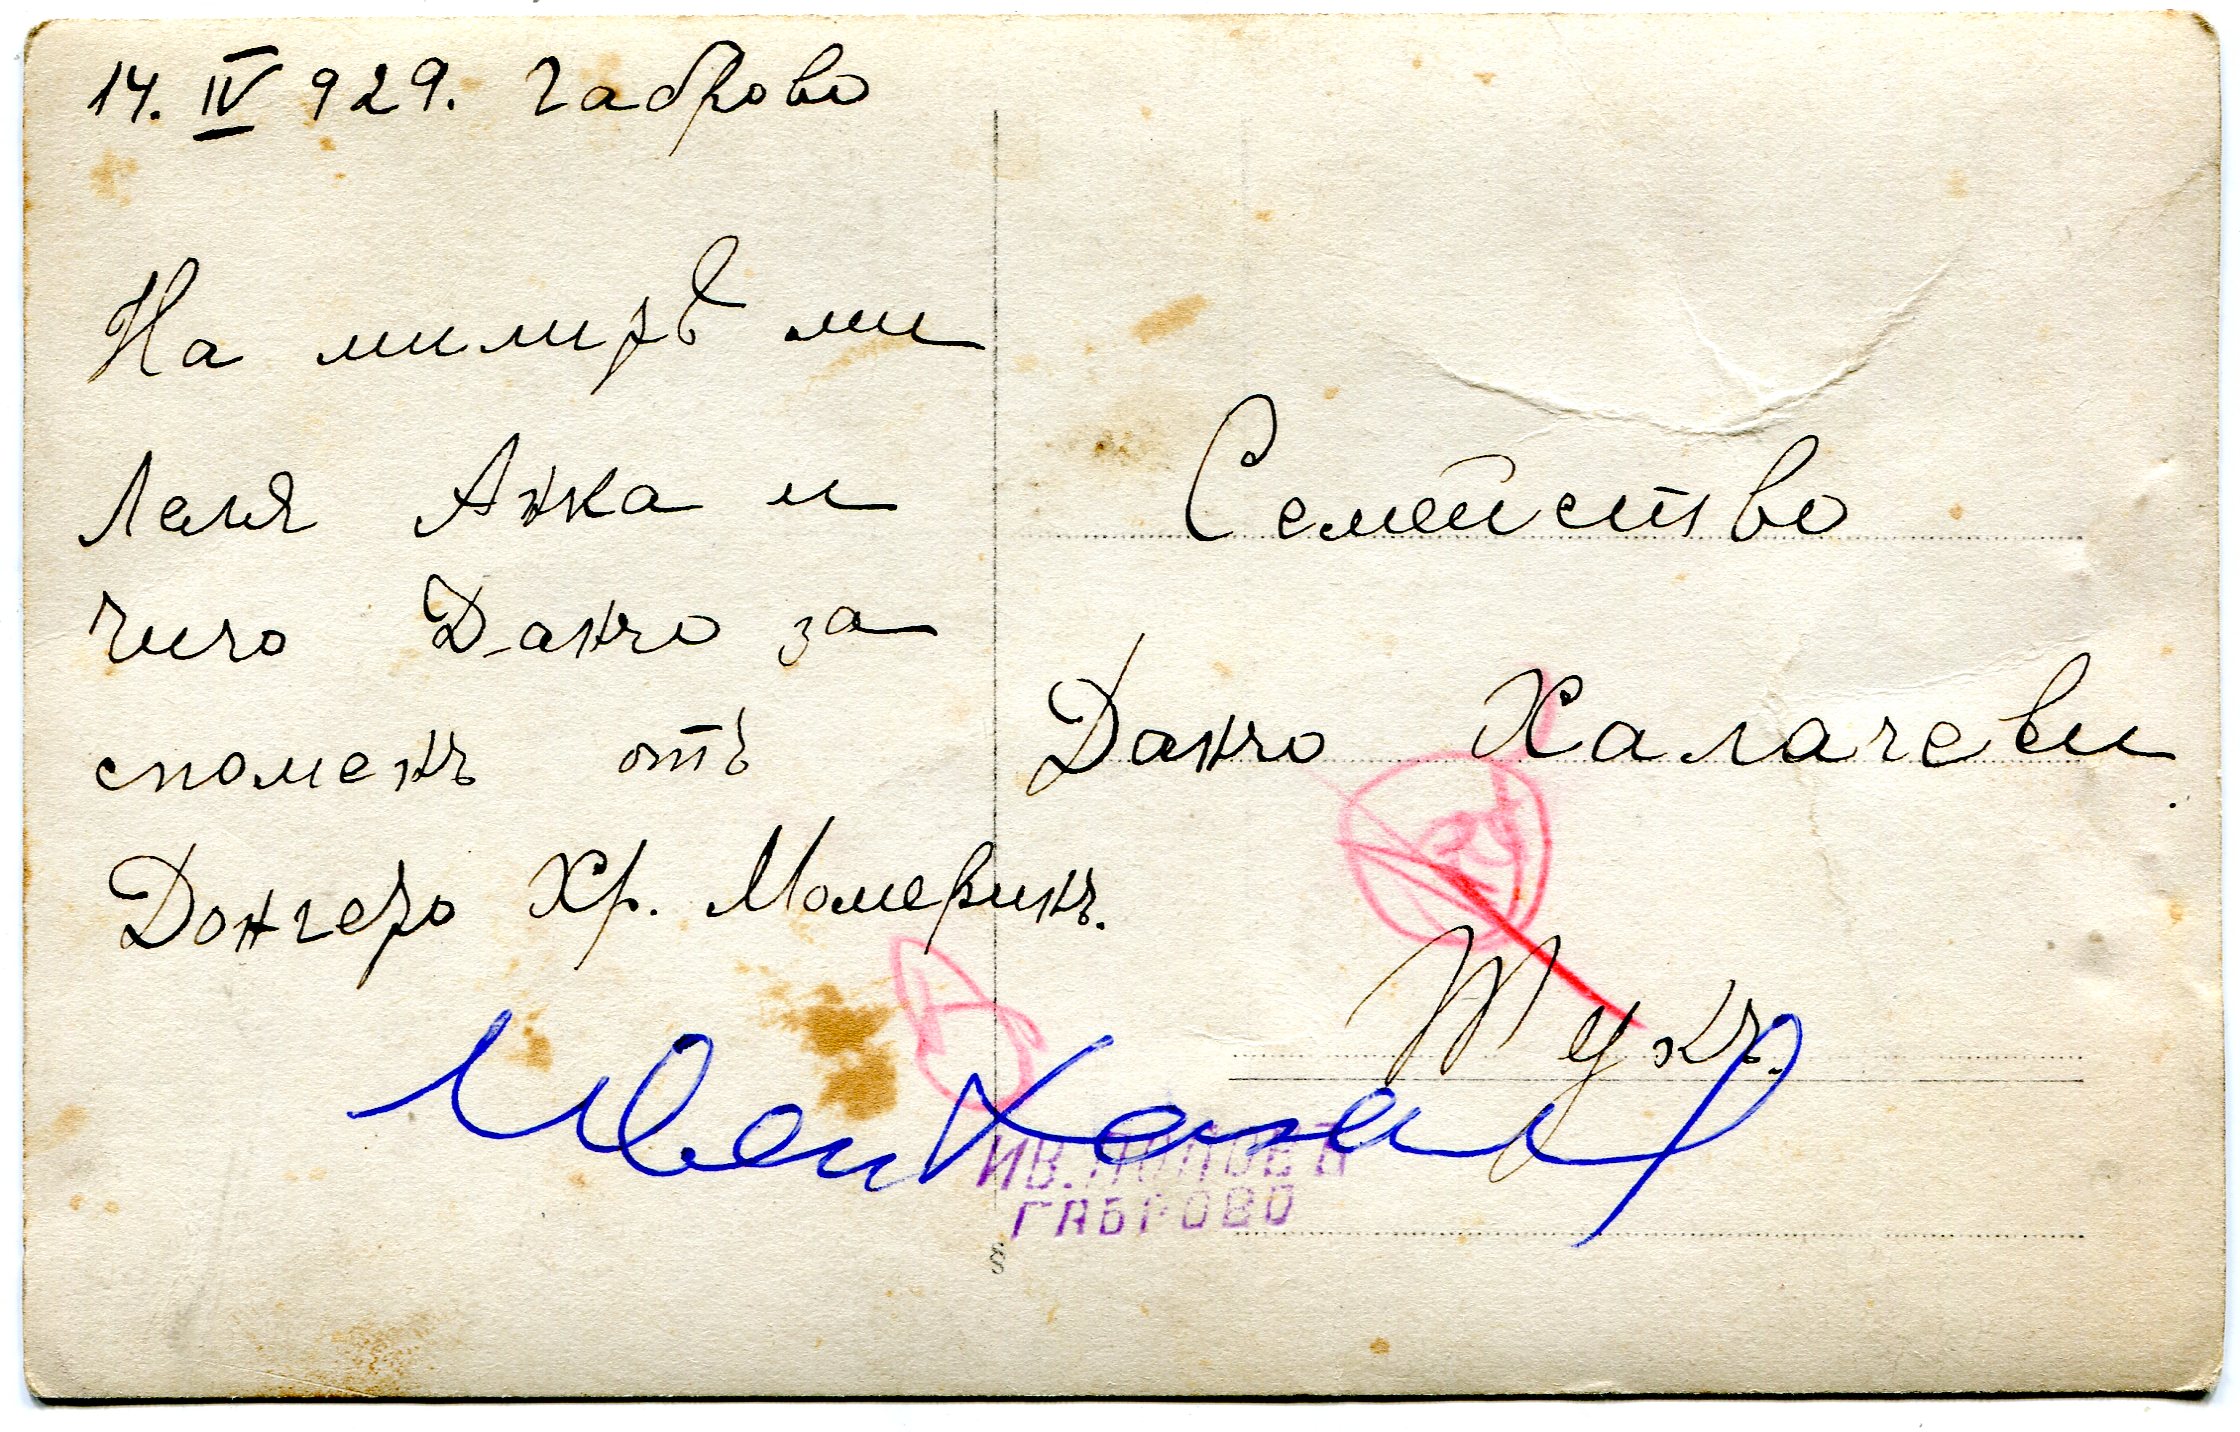 14. IV 929. Габрово
На милитѣ ми
Леля Анка и
Чичо Данчо за
споменъ отъ
Дончето Хр. Момеринъ.
Семейство
Данчо Халачеви.
Тукъ.
ИВ. ПОПОВЪ
ГАБРОВО